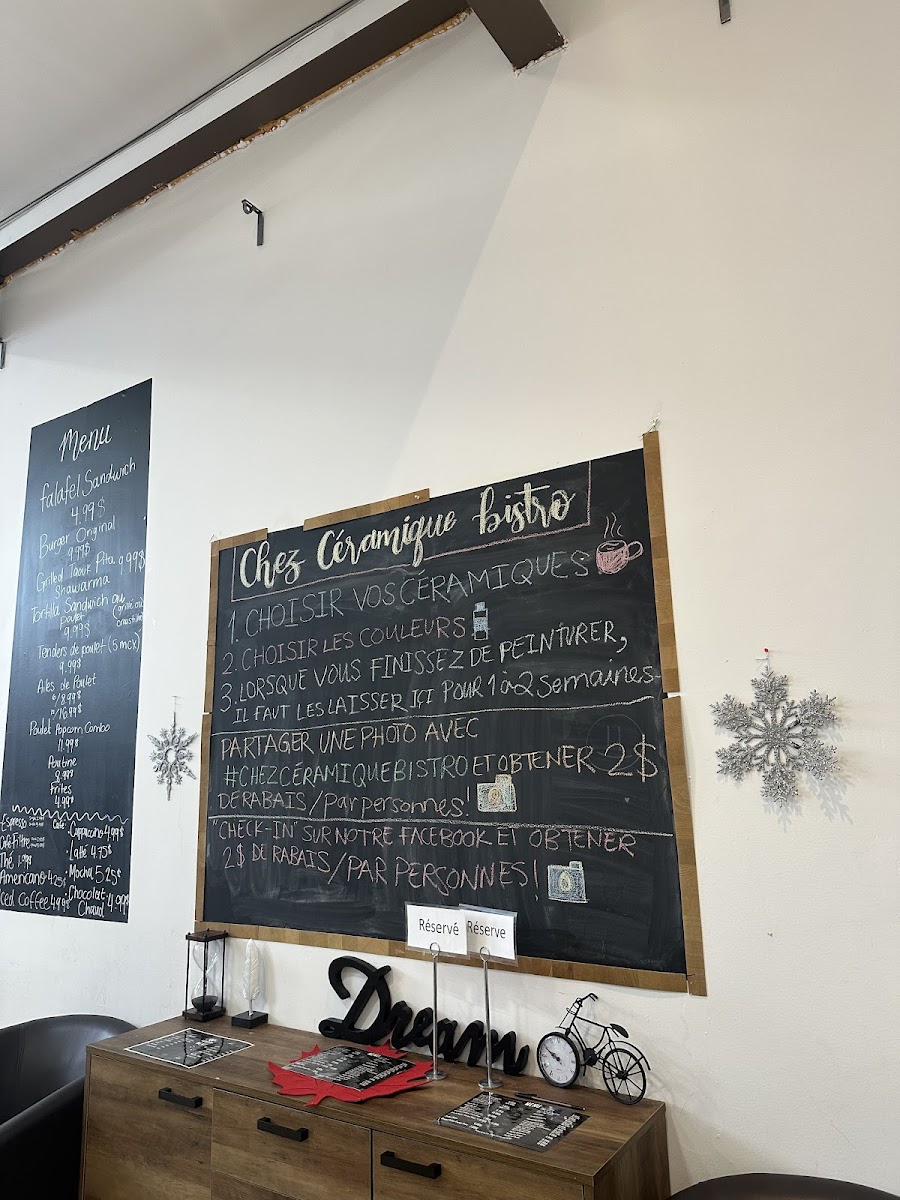 Menu
falafel Sandwich
4.99$
Burger Original
9.99$
Grilled Taouk Pita 9.99$
Shawarma
Tortilla Sandwich au
poulet
9.99$
Tenders de poulet (5 mcx)
9.99$
Ailes de Poulet
6/8.99$
Poulet Popcorn Combo
11.99$
Poutine
8.99$
Frites
4.99$
Espresso
Café Filtre
Thé 1.99$
Americano 4.25$
Iced Coffee 4.99$
Café
Cappuccino 4.99$
Latté 4.75$
Mocha 5.25$
Chocolat 4.99$
Chaud
Chez Céramique bistro
1. CHOISIR VOS CÉRAMIQUES
2. CHOISIR LES COULEURS
3. LORSQUE VOUS FINISSEZ DE PEINTURER,
IL FAUT LES LAISSER ICI POUR 1 à 2 semaines
PARTAGER UNE PHOTO AVEC
#CHEZCÉRAMIQUEBISTRO ET OBTENER 2$
DE RABAIS / par personnes!
"CHECK-IN" SUR NOTRE FACEBOOK ET OBTENER
2$ DE RABAIS / PAR PERSONNES!
Réservé
Réserve
Dream